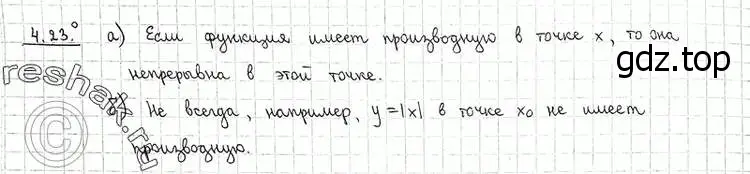 4.23.° а) Если функция имеет производную в точке x, то она
непрерывна в этой точке.
б) Не всегда, например, y=|x| в точке x₀ не имеет
производную.
gdz.top
reshak.ru
©